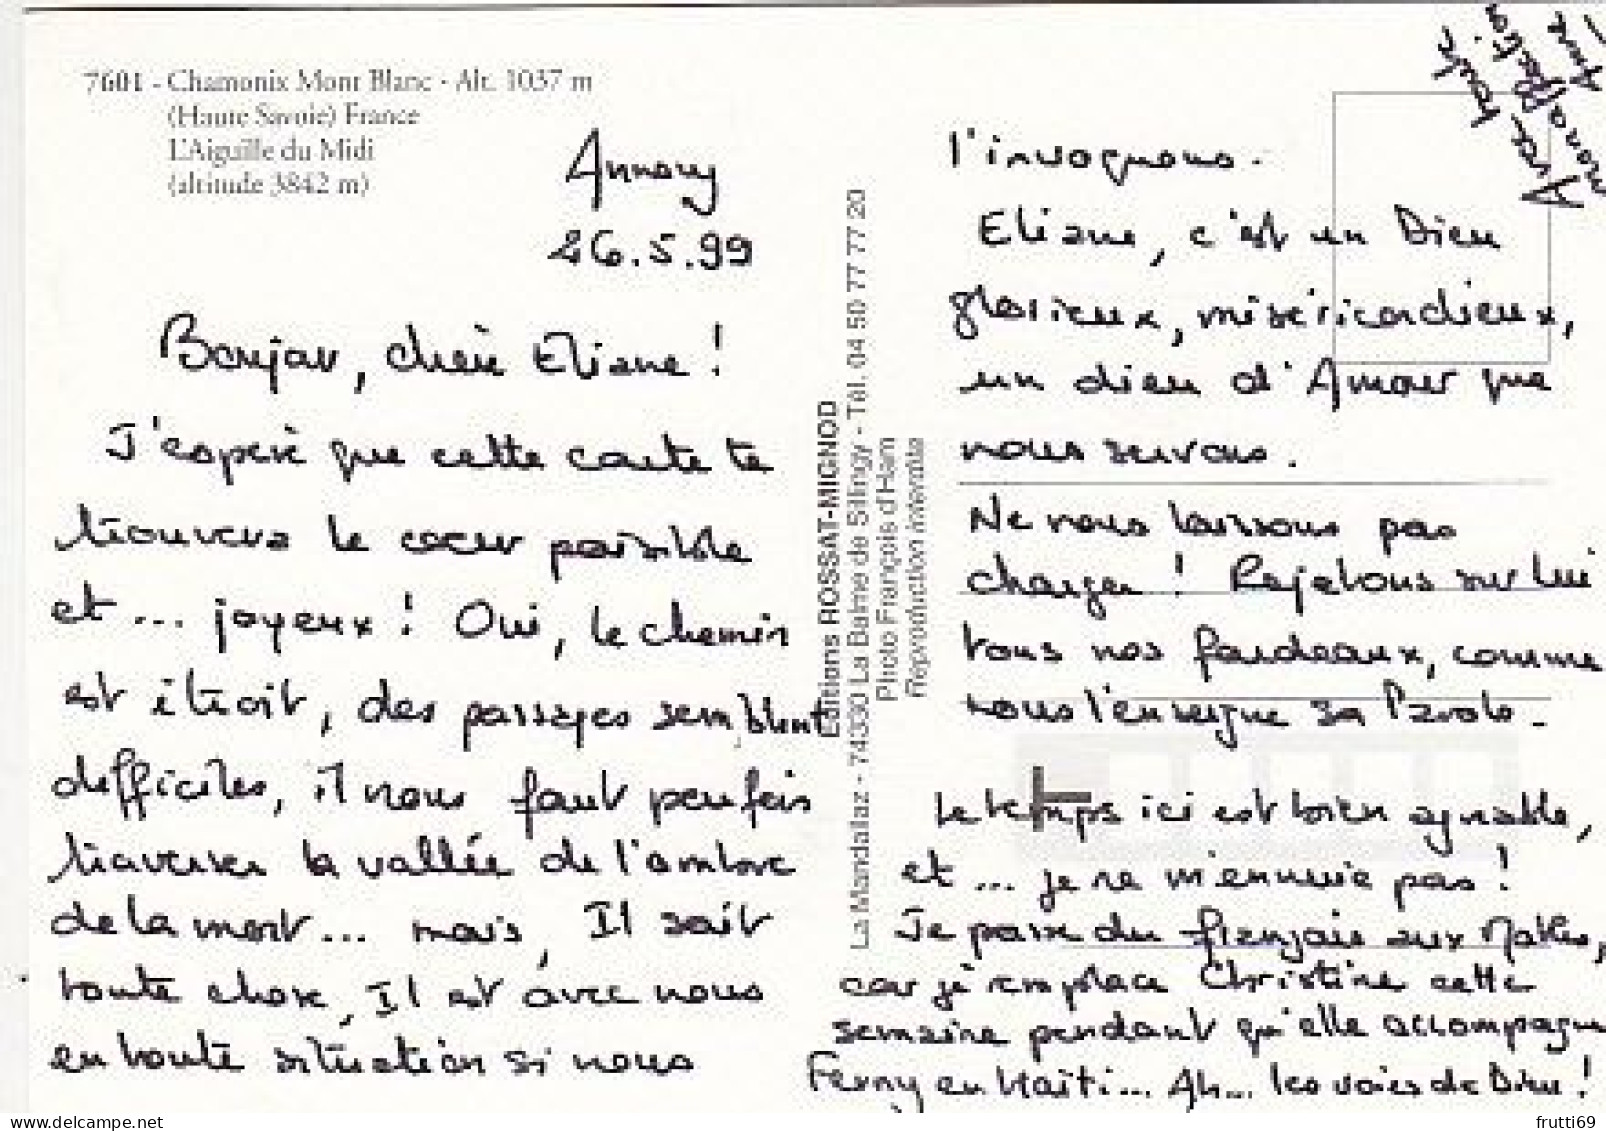 7601 - Chamonix Mont Blanc - Alt. 1037 m
(Haute Savoie) France
L'Aiguille du Midi
(altitude 3842 m)
26.5.99
Bonjour, chère Eliane !
J'espère que cette carte te
trouvera le coeur paisible
et ... joyeux ! Oui, le chemin
est étroit, des passages semblent
difficiles, il nous faut parfois
traverser la vallée de l'ombre
de la mort... mais, Il sait
toute chose, Il est avec nous
en toute situation si nous
Editions ROSSAT-MIGNOD
La Mandallaz - 74330 La Balme de Sillingy - Tél. 04 50 77 77 20
Photo François d'Ham
Reproduction interdite
l'invoquons.
Eliane, c'est un Dieu
glorieux, miséricordieux,
un dieu d'Amour que
nous servons.
Ne nous laissons pas
charger ! Rejetons sur Lui
tous nos fardeaux, comme
nous l'enseigne sa Parole.
Le temps ici est bien agréable,
et ... je ne m'ennuie pas !
Je passe du français aux Maths,
car je remplace Christine cette
semaine pendant qu'elle accompagne
Fanny en Haïti... Ah... les voies de Dieu !
Avec toute
mon affection
Anne
frutti69